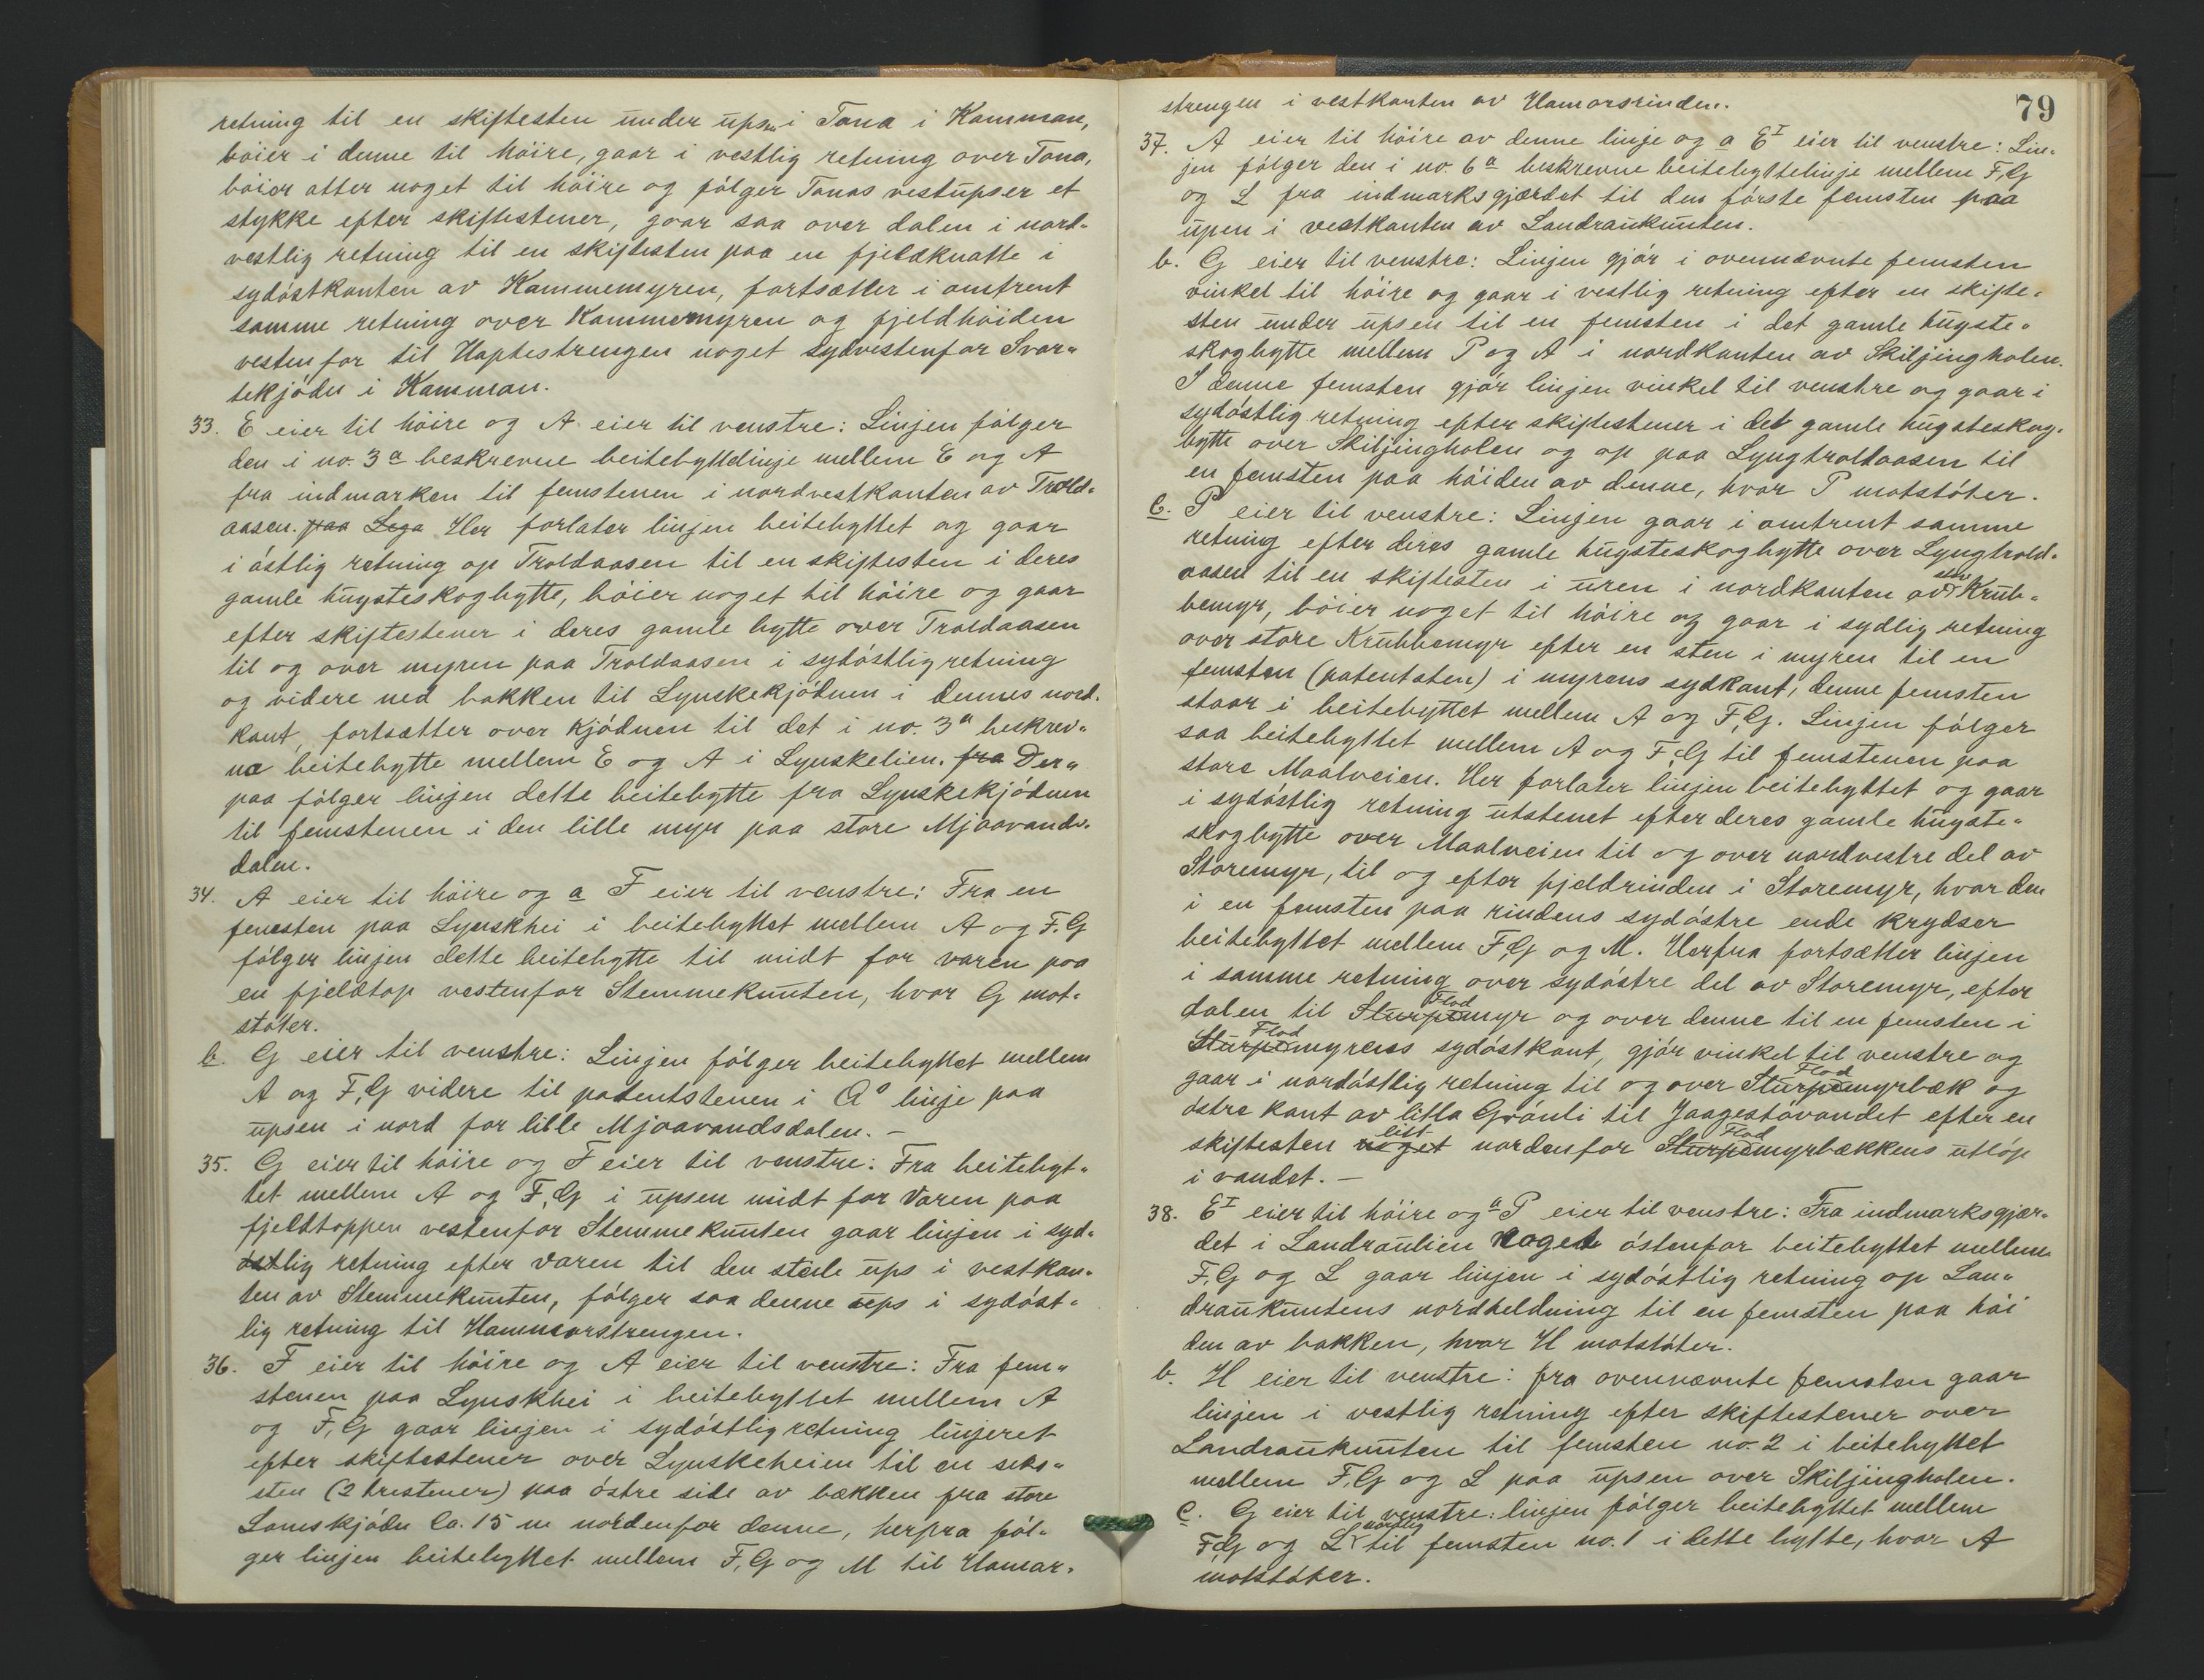 retning til en skiftesten under upsen i Tona i Kamman,
böier i denne til höire, gaar i vestlig retning over Tona,
böier atter noget til höire og fölger Tonas vestupser et
stykke efter skiftestener, gaar saa over dalen i nord-
vestlig retning til en skiftesten paa en fjeldknatte i
sydöstkanten av Kammemyren, fortsætter i omtrent
samme retning over Kammemyren og fjeldhöiden
vestenfor til Haptestrengen noget sydvestenfor Svar-
tekjödn i Kamman.
33. E eier til höire og A eier til venstre: Linjen fölger
den i no. 3a beskrevne beitebyttelinje mellem E og A
fra indmarken til femstenen i nordvestkanten av Trold-
aasen. paa Lega Her forlater linjen beitebyttet og gaar
i östlig retning op Troldaasen til en skiftesten i deres
gamle hugsteskogbytte, böier noget til höire og gaar
efter skiftestener i deres gamle bytte over Troldaasen
til og over myren paa Troldaasen i sydöstlig retning
og videre ned bakken til Lynskekjödnen i dennes nord-
kant, fortsætter over kjödnen til det i no. 3a beskrev-
ne beitebytte mellem E og A i Lynskelien. fra Der-
paa fölger linjen dette beitebytte fra Lynskekjödnen
til femstenen i den lille myr paa store Mjaavands-
dalen.
34. A eier til höire og a F eier til venstre: Fra en
femsten paa Lynskhei i beitebyttet mellem A og F.G
fölger linjen dette beitebytte til midt for varen paa
en fjeldtop vestenfor Stemmeknuten, hvor G mot-
stöter.
b. G eier til venstre: Linjen fölger beitebyttet mellem
A og F,G videre til patentstenen i Q° linje paa
upsen i nord for lille Mjaavandsdalen. —
35. G eier til höire og F eier til venstre: Fra beitebyt-
tet mellem A og F,G i upsen midt for Varen paa
fjeldtoppen vestenfor Stemmeknuten gaar linjen i syd-
östlig retning efter varen til den steile ups i vestkan-
ten av Stemmeknuten, fölger saa denne ups i sydöst-
lig retning til Hammarstrengen.
36. F eier til höire og A eier til venstre: Fra fem-
stenen paa Lynskhei i beitebyttet mellem A
og F,G gaar linjen i sydöstlig retning linjeret
efter skiftestener over Lynskeheien til en seks-
sten (2 trestener) paa östre side av bækken fra store
Lomskjödn Ca. 15 m nordenfor denne, herfra föl-
ger linjen beitebyttet mellem F,G og M til Hamar-
79
strengen i vestkanten av Hamorsrinden.
37. A eier til höire av denne linje og a EI eier til venstre: Lin-
jen fölger den i no. 6a beskrevne beitebyttelinje mellem F,G
og L fra indmarksgjærdet til den förste femsten paa
upen i vestkanten av Landrauknuten.
b. G eier til venstre: Linjen gjör i ovennævnte femsten
vinkel til höire og gaar i vestlig retning efter en skifte-
sten under upsen til en femsten i det gamle hugste-
skogbytte mellem P og A i nordkanten av Skiljingholen.
I denne femsten gjör linjen vinkel til venstre og gaar i
sydöstlig retning efter skiftestener i det gamle hugsteskog-
bytte over Skiljingholen og op paa Lyngtroldaasen til
en femsten paa höiden av denne, hvor P motstöter.
C. P eier til venstre: Linjen gaar i omtrent samme
retning efter deres gamle hugsteskogbytte over Lyngtrold-
aasen til en skiftesten i uren i nordkanten av store Krub-
bemyr, böier noget til höire og gaar i sydlig retning
over store Krubbemyr efter en sten i myren til en
femsten (patentsten) i myrens sydkant, denne femsten
staar i beitebyttet mellem A og F,G. Linjen fölger
saa beitebyttet mellem A og F,G til femstenen paa
store Maalveien. Her forlater linjen beitebyttet og gaar
i sydöstlig retning utstenet efter deres gamle hugste-
skogbytte over Maalveien til og over nordvestre del av
Storemyr, til og efter fjeldrinden i Storemyr, hvor den
i en femsten paa rindens sydöstre ende krydser
beitebyttet mellem F,G og M. Herfra fortsætter linjen
i samme retning over sydöstre del av Storemyr, efter
dalen til Sturpe Flod myr og over denne til en femsten i
Sturpe Flod myrens sydöstkant, gjör vinkel til venstre og
gaar i nordöstlig retning til og over Sturpe Flod myrbæk og
östre kant av litla Grönli til Jaagestövandet efter en
skiftesten noget litt nordenfor Sturpe Flod myrbækkens utlöp
i vandet. —
38. EI eier til höire og a P eier til venstre: Fra indmarksgjær-
det i Landraulien noget östenfor beitebyttet mellem
F,G og L gaar linjen i sydöstlig retning op Lan-
drauknutens nordheldning til en femsten paa höi
den av bakken, hvor H motstöter.
b. H eier til venstre: fra ovennævnte femsten gaar
linjen i vestlig retning efter skiftestener over
Landrauknuten til femsten no. 2 i beitebyttet
mellem F,G og L paa upsen over Skiljingholen.
C. G eier til venstre: linjen fölger beitebyttet mellem
F,G og L nordlig til femsten no. 1 i dette bytte, hvor A
motstöter.